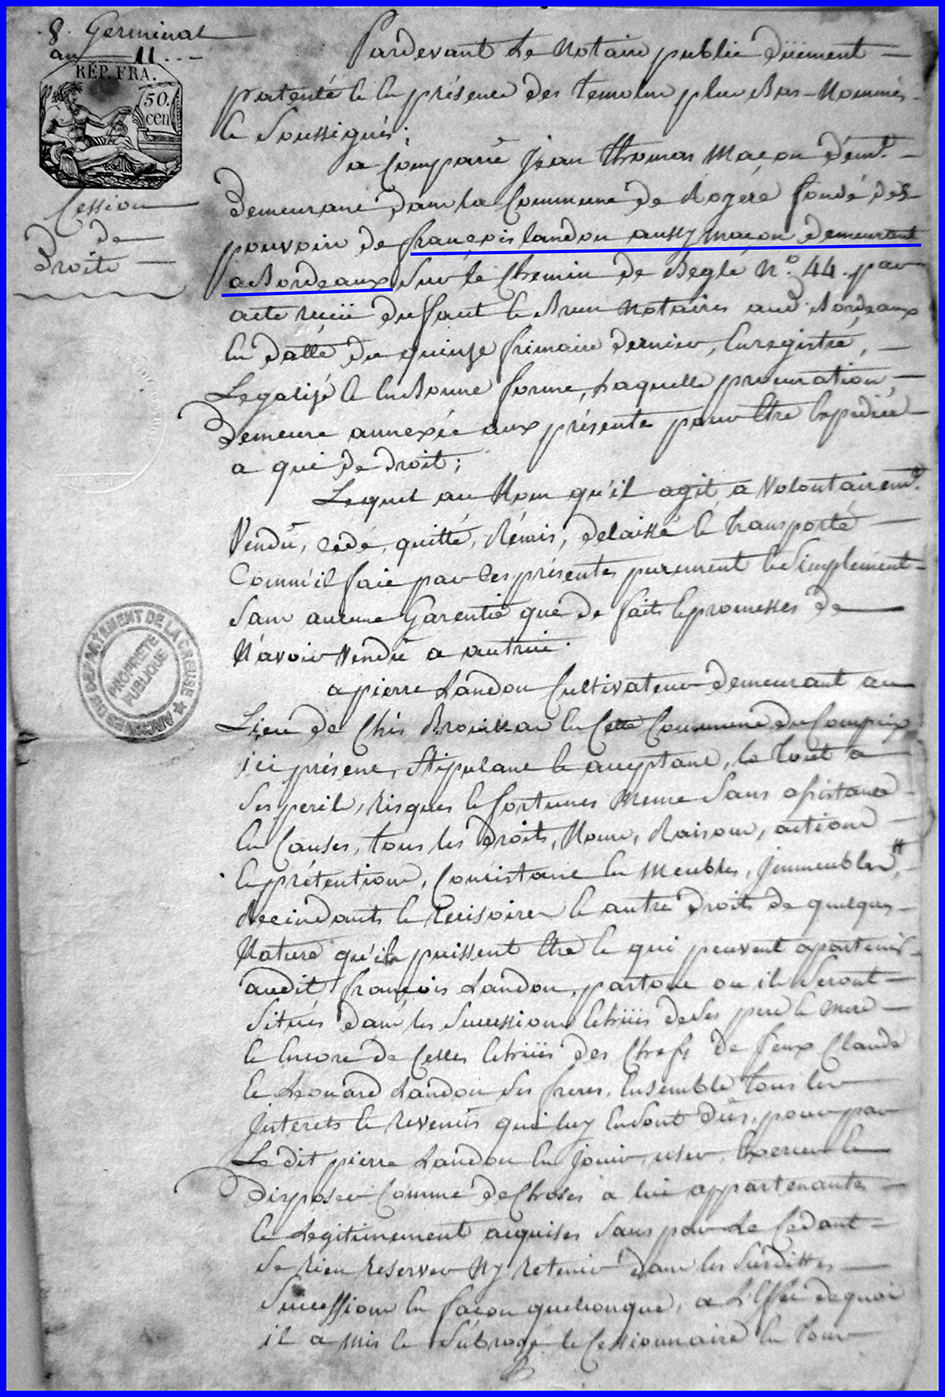 8. Germinal
an 11...
RÉP. FRA.
50.
cen
Cession
de
Droits
Pardevant Le Notaire public düement
patenté & en présence des temoins plus Bas-Nommés
& Soussignés;
a Comparu Jean thomas Macon
Demeurant dans la Commune de fondé des
pouvoirs de françois landon aussy macon demeurant
a Bordeaux Sur le Chemin de Begle N.o 44. par
acte reçu Dufaut & Brun Notaires aud. Bordeaux
En datte du quinze frimaire dernier, Enregistré,
Legalisé & En Bonne forme, Laquelle procuration,
Demeure annexée aux présentes pour Etre Expediée
a qui de Droit;
Lequel au Nom qu'il agit a Volontairemt.
Vendu, cede, quitté, Rémis, delaissé & Transporté
Comm'il fait par Ces présentes purement & Simplement
Sans aucune Garentie que de faits & promesses de
N'avoir Vendu a autrui.
a pierre Landon Cultivateur demeurant au
Lieu de Chés Brouillar En Cette Commune du Compeix
ici présent, Stipulant & acceptant, le tout a
Ses peril, risques & fortunes meme Sans assistance
En Causes, tous les Droits, Noms, Raisons, actions
& prétentions, Consistant En Meubles, Jmmeubles,
Rescindants & rescisoires & autre Droits de quelques
Nature qu'ils puissent Etre & qui peuvent apartenir
audit françois Landon, partout ou ils Seront
Situés dans les Successions Echües de Ses pere & mere
& Encore de Celles Echües des Chefs de feux Claude
& Leonard Landon Ses freres, Ensemble tous les
Jnterets & revenus qui luy En Sont Dûs, pour par
Le dit pierre Landon En Jouir, user, Exercer &
Disposer Comme de Choses a lui appartenantes
& Legitimement acquises Sans par Le Cédant
Se rien reserver Ny retenir dans les Susdittes
Successions En facon quelconque, a L'Effet de quoi
il a mis & Subrogé le Cessionnaire En tous
ARCHIVES DU DÉPARTEMENT DE LA CREUSE
PROPRIÉTÉ
PUBLIQUE